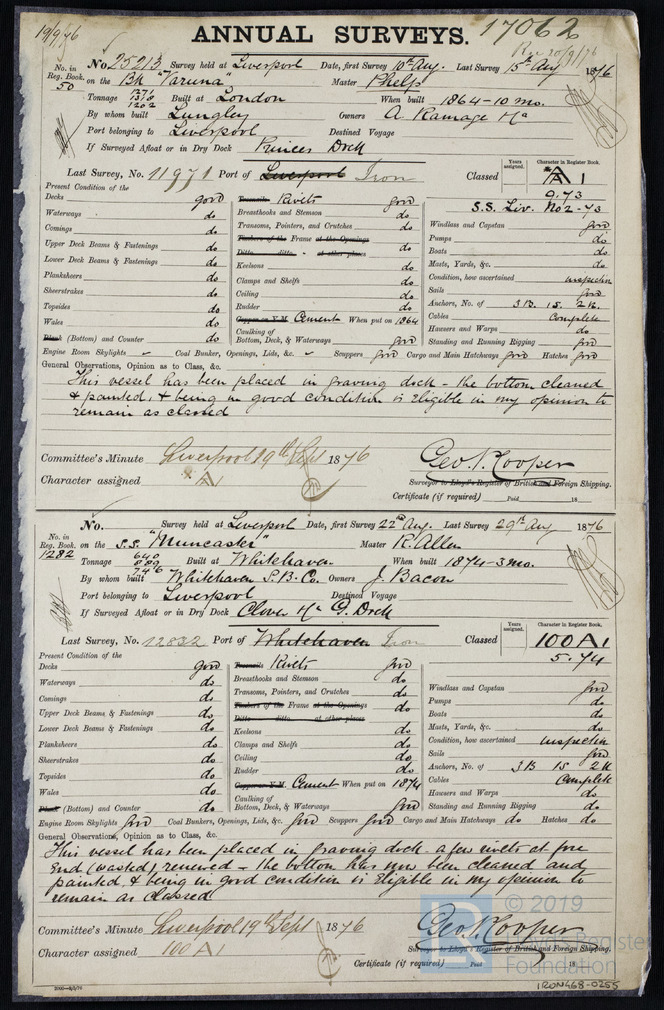 19/9/76
ANNUAL SURVEYS.
17062
Rec 20/9/76
No. 25213 Survey held at Liverpool Date, first Survey 10th Aug. Last Survey 15th Aug 1876
No. in Reg. Book. 50 on the Bk "Varuna" Master Phelps
Tonnage 1271 1318 1202 Built at London When built 1864-10 mo.
By whom built Lungley Owners A Ramage &c
Port belonging to Liverpool Destined Voyage
If Surveyed Afloat or in Dry Dock Princes Dock
Last Survey, No. 11971 Port of Liverpool Iron Classed Years assigned. Character in Register Book. A1
0.73
S.S. Liv. No 2-73
Present Condition of the
Decks good
Waterways do
Comings do
Upper Deck Beams & Fastenings do
Lower Deck Beams & Fastenings do
Planksheers do
Sheerstrakes do
Topsides do
Wales do
Plank (Bottom) and Counter do
Treenails Rivets good
Breasthooks and Stemson do
Transoms, Pointers, and Crutches do
Timbers of the Frame at the Openings
Ditto ditto at other places do
Keelsons do
Clamps and Shelfs do
Ceiling do
Rudder do
Copper or Y.M. Cement When put on 1864
Caulking of Bottom, Deck, & Waterways good
Windlass and Capstan good
Pumps do
Boats do
Masts, Yards, &c. do
Condition, how ascertained inspection
Sails good
Anchors, No. of 3B. 1S. 2K.
Cables Complete
Hawsers and Warps do
Standing and Running Rigging good
Engine Room Skylights Coal Bunker, Openings, Lids, &c. Scuppers good Cargo and Main Hatchways good Hatches good
General Observations, Opinion as to Class, &c.
This vessel has been placed in graving dock - the bottom cleaned
& painted, & being in good condition is Eligible in my opinion to
remain as classed
Committee's Minute Liverpool 19th Sept 1876
Character assigned A1
Geo. N. Cooper
Surveyor to Lloyd's Register of British and Foreign Shipping.
Certificate (if required) Paid 18
No. Survey held at Liverpool Date, first Survey 22nd Aug. Last Survey 29th Aug 1876
No. in Reg. Book. 1282 on the S.S. "Muncaster" Master R. Allen
Tonnage 640 889 746 Built at Whitehaven When built 1874-3mo.
By whom built Whitehaven S.B. Co. Owners J. Bacon
Port belonging to Liverpool Destined Voyage
If Surveyed Afloat or in Dry Dock Clover &c G. Dock
Last Survey, No. 12832 Port of Whitehaven Iron Classed Years assigned. Character in Register Book. 100 A1
5.74
Present Condition of the
Decks good
Waterways do
Comings do
Upper Deck Beams & Fastenings do
Lower Deck Beams & Fastenings do
Planksheers do
Sheerstrakes do
Topsides do
Wales do
Plank (Bottom) and Counter do
Treenails Rivets good
Breasthooks and Stemson do
Transoms, Pointers, and Crutches do
Timbers of the Frame at the Openings do
Ditto ditto at other places
Keelsons do
Clamps and Shelfs do
Ceiling do
Rudder do
Copper or Y.M. Cement When put on 1874
Caulking of Bottom, Deck, & Waterways good
Windlass and Capstan good
Pumps do
Boats do
Masts, Yards, &c. do
Condition, how ascertained inspection
Sails good
Anchors, No. of 3B 1S 2K
Cables Complete
Hawsers and Warps do
Standing and Running Rigging do
Engine Room Skylights good Coal Bunkers, Openings, Lids, &c. good Scuppers good Cargo and Main Hatchways do Hatches do
General Observations, Opinion as to Class, &c.
This vessel has been placed in graving dock - a few rivets at fore
End (wasted) renewed - the bottom has now been cleaned and
painted, & being in good condition is Eligible in my opinion to
remain as Classed
Committee's Minute Liverpool 19th Sept 1876
Character assigned 100 A1
Geo. N. Cooper
Surveyor to Lloyd's Register of British and Foreign Shipping.
Certificate (if required) Paid 18
© 2019
Foundation
IRON468-0255